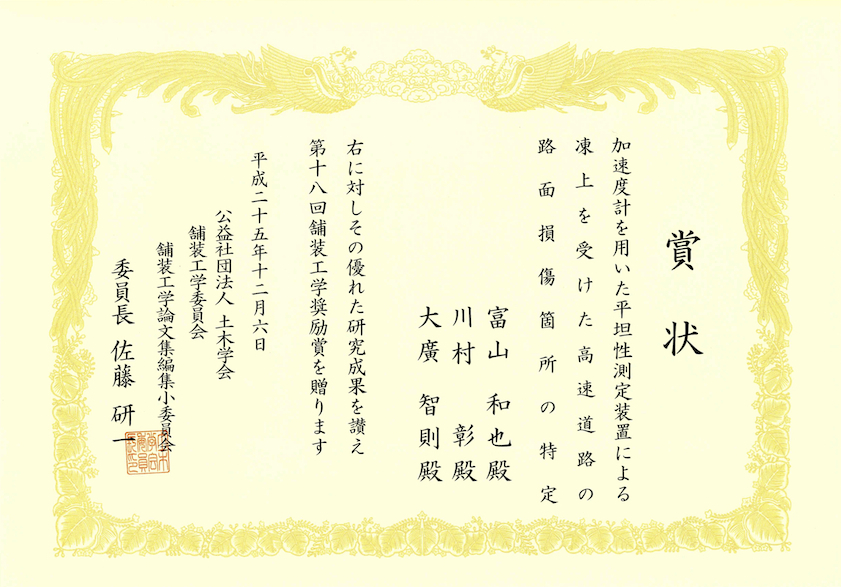 賞状
加速度計を用いた平坦性測定装置による
凍上を受けた高速道路の
路面損傷箇所の特定
富山 和也殿
川村 彰殿
大廣 智則殿
右に対しその優れた研究成果を讃え
第十八回舗装工学奨励賞を贈ります
平成二十五年十二月六日
公益社団法人 土木学会
舗装工学委員会
舗装工学論文集編集小委員会
委員長 佐藤 研一